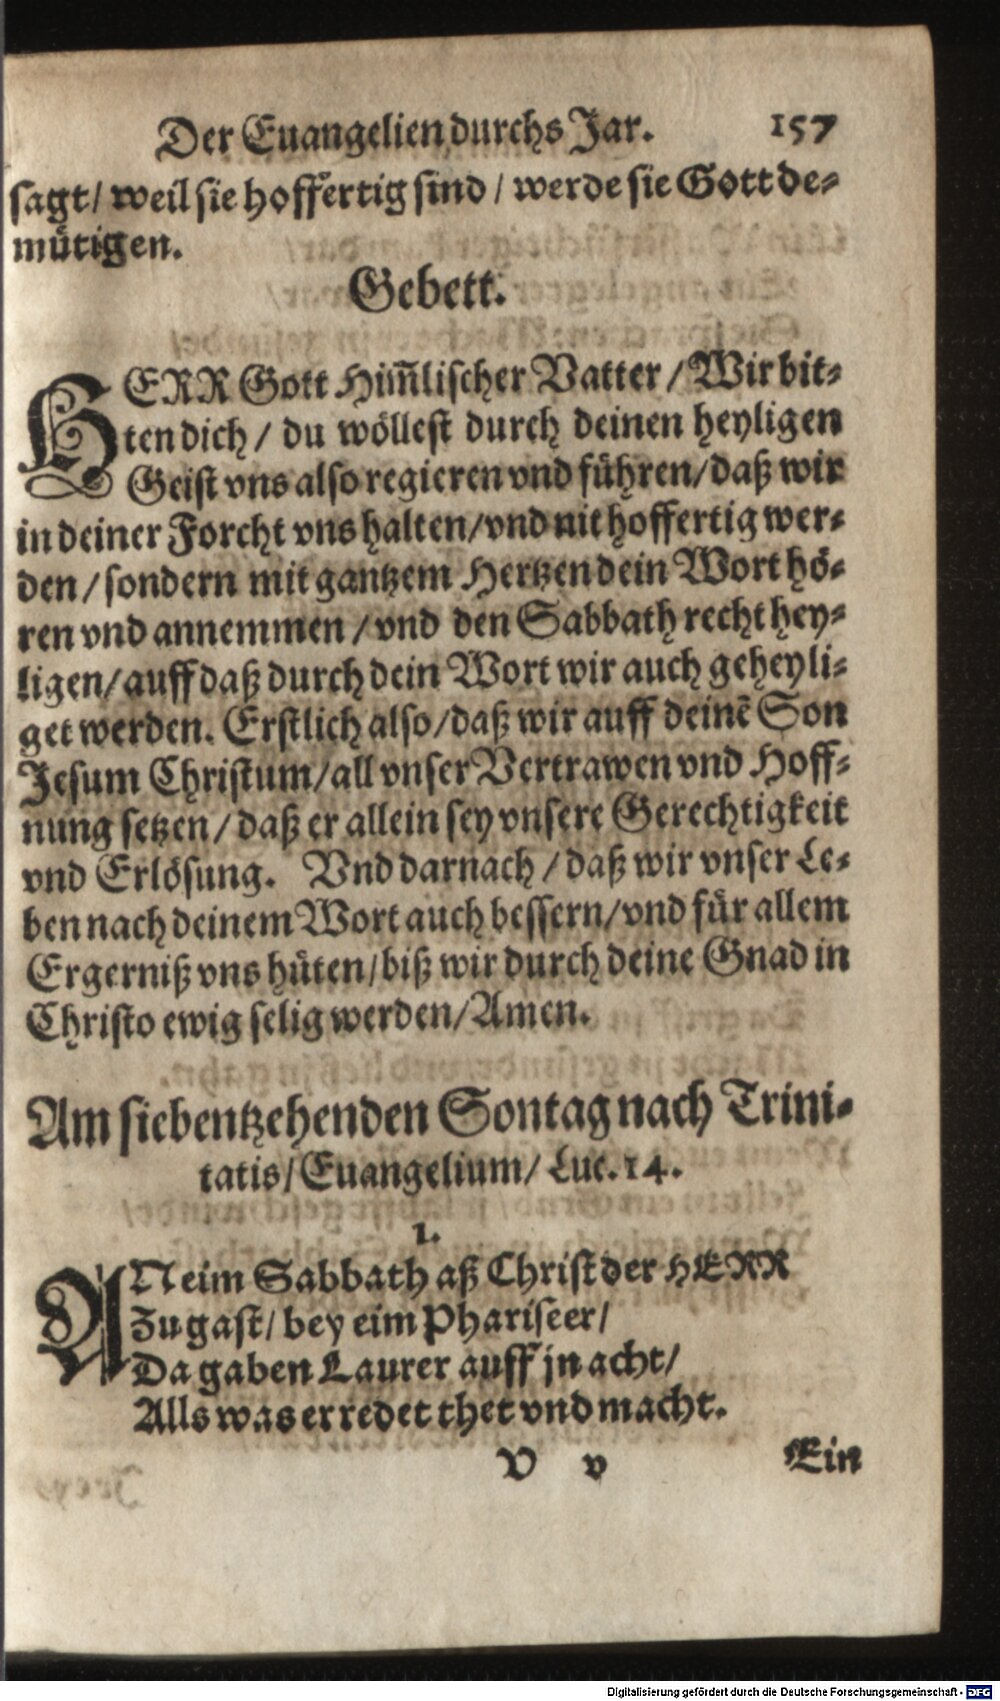 Der Euangelien durchs Jar. 157
sagt/ weil sie hoffertig sind / werde sie Gott de-
mütigen.
Gebett.
HERR Gott Him̃lischer Vatter / Wir bit-
ten dich / du wöllest durch deinen heyligen
Geist vns also regieren vnd führen/ daß wir
in deiner Forcht vns halten/ vnd nit hoffertig wer-
den / sondern mit gantzem Hertzen dein Wort hö-
ren vnd annemmen / vnd den Sabbath recht hey-
ligen/ auff daß durch dein Wort wir auch geheyli-
get werden. Erstlich also/ daß wir auff deinẽ Son
Jesum Christum/ all vnser Vertrawen vnd Hoff-
nung setzen / daß er allein sey vnsere Gerechtigkeit
vnd Erlösung. Vnd darnach / daß wir vnser Le-
ben nach deinem Wort auch bessern/ vnd für allem
Ergerniß vns hüten/ biß wir durch deine Gnad in
Christo ewig selig werden/ Amen.
Am siebentzehenden Sontag nach Trini-
tatis/ Euangelium/ Luc. 14.
1.
AN eim Sabbath aß Christ der HERR
Zu gast/ bey eim Phariseer/
Da gaben Laurer auff jn acht/
Alls was er redet thet vnd macht.
V v Ein
Digitalisierung gefördert durch die Deutsche Forschungsgemeinschaft - DFG